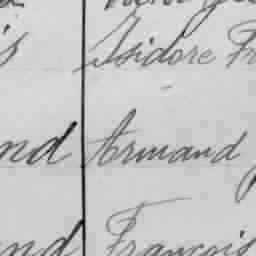 Isidore Fr
nd Armand
nd François